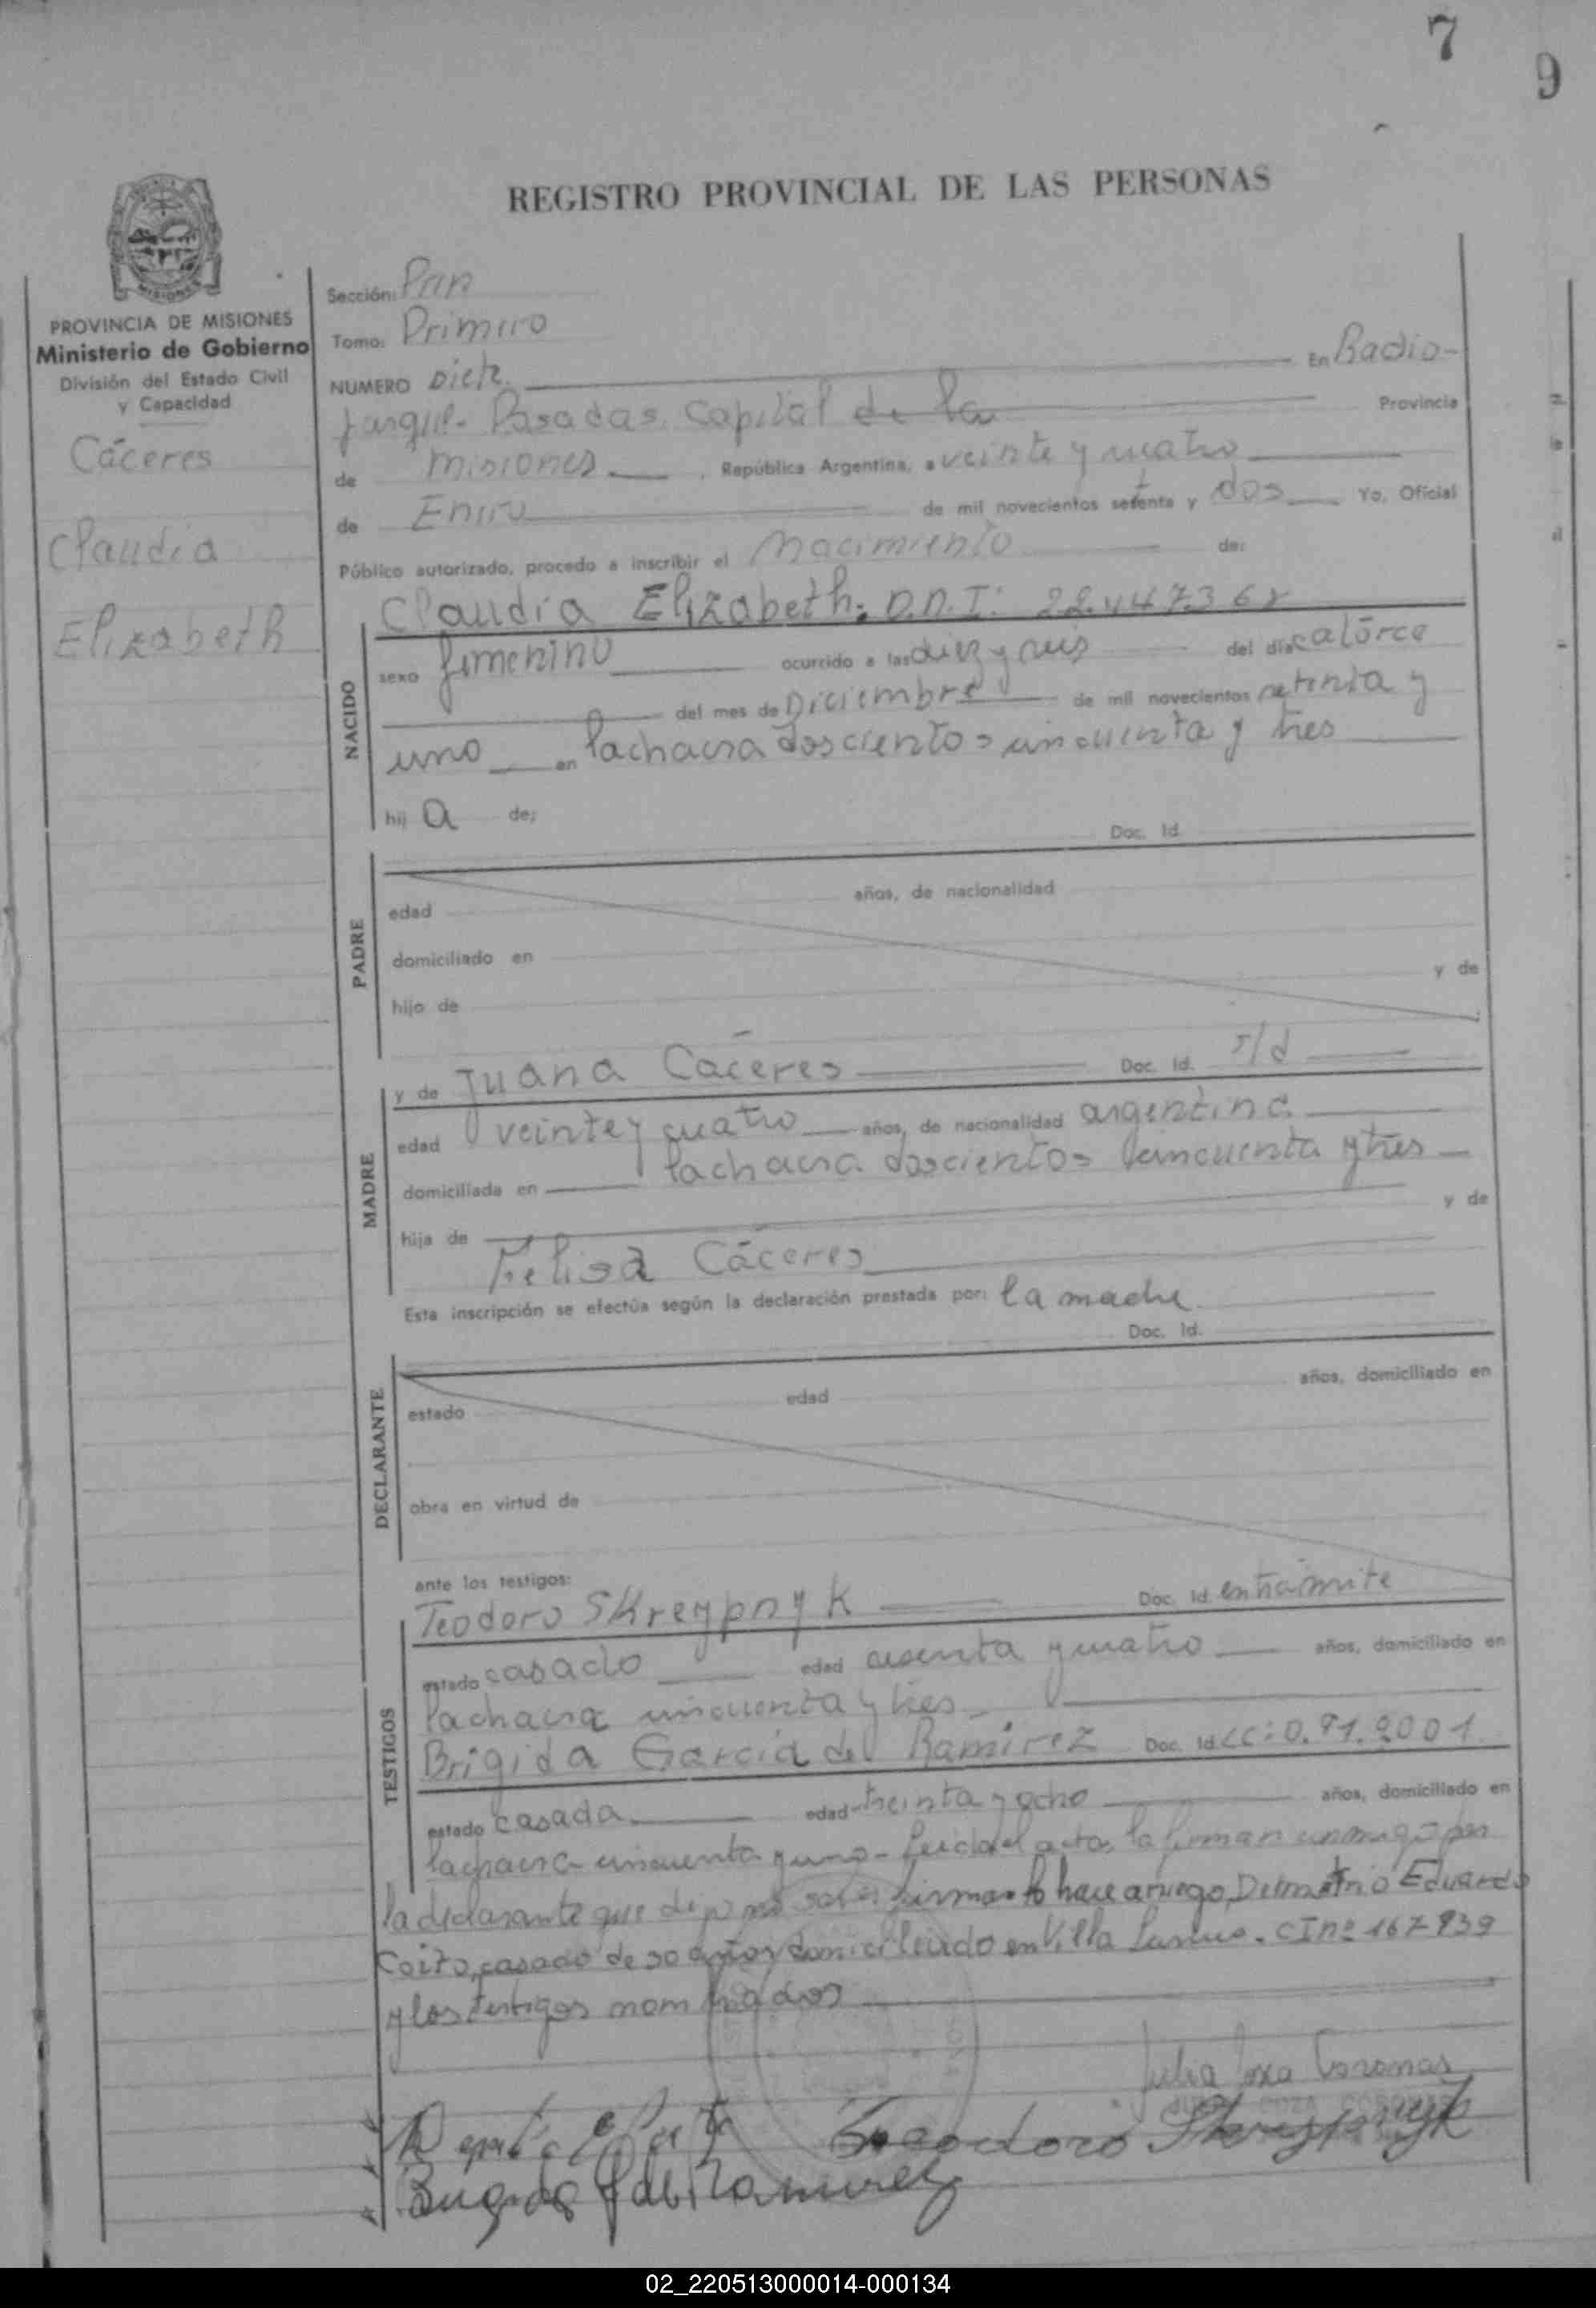 7
9
REGISTRO PROVINCIAL DE LAS PERSONAS
MISIONES
PROVINCIA DE MISIONES
Ministerio de Gobierno
División del Estado Civil
y Capacidad
Cáceres
Claudia
Elizabeth
Sección:
Tomo: Primero
NUMERO siete. En Radio-
parque. Posadas, Capital de la Provincia
de misiones, República Argentina, a veinte y cuatro
de Enero de mil novecientos setenta y dos Yo, Oficial
Público autorizado, procedo a inscribir el nacimiento de:
Claudia Elizabeth: D.N.I:
NACIDO
sexo femenino ocurrido a las diez y seis del día catorce
del mes de Diciembre de mil novecientos setenta y
uno en la chacra doscientos cincuenta y tres
hij a de;
Doc. Id.
PADRE
edad años, de nacionalidad
domiciliado en
hijo de y de
MADRE
y de Juana Cáceres Doc. Id. s/d
edad veinte y cuatro años, de nacionalidad argentina
domiciliada en la chacra doscientos cincuenta y tres
hija de y de
Felisa Cáceres
Esta inscripción se efectúa según la declaración prestada por: la madre
Doc. Id.
DECLARANTE
estado edad años, domiciliado en
obra en virtud de
ante los testigos:
TESTIGOS
Teodoro Skreypnyk Doc. Id. en trámite
estado casado edad y cuatro años, domiciliado en
la chacra cincuenta y tres
Brigida Garcia de Ramirez Doc. Id.
estado casada edad treinta y ocho años, domiciliado en
la chacra cincuenta y uno - Leída el acta, la firman conmigo por
la declarante que dijo no saber firmar lo hace a ruego, Demetrio Eduardo
casado de 50 años domiciliado en Villa CI nº 167939
y los testigos nombrados
Teodoro Skreypnyk
02_220513000014-000134